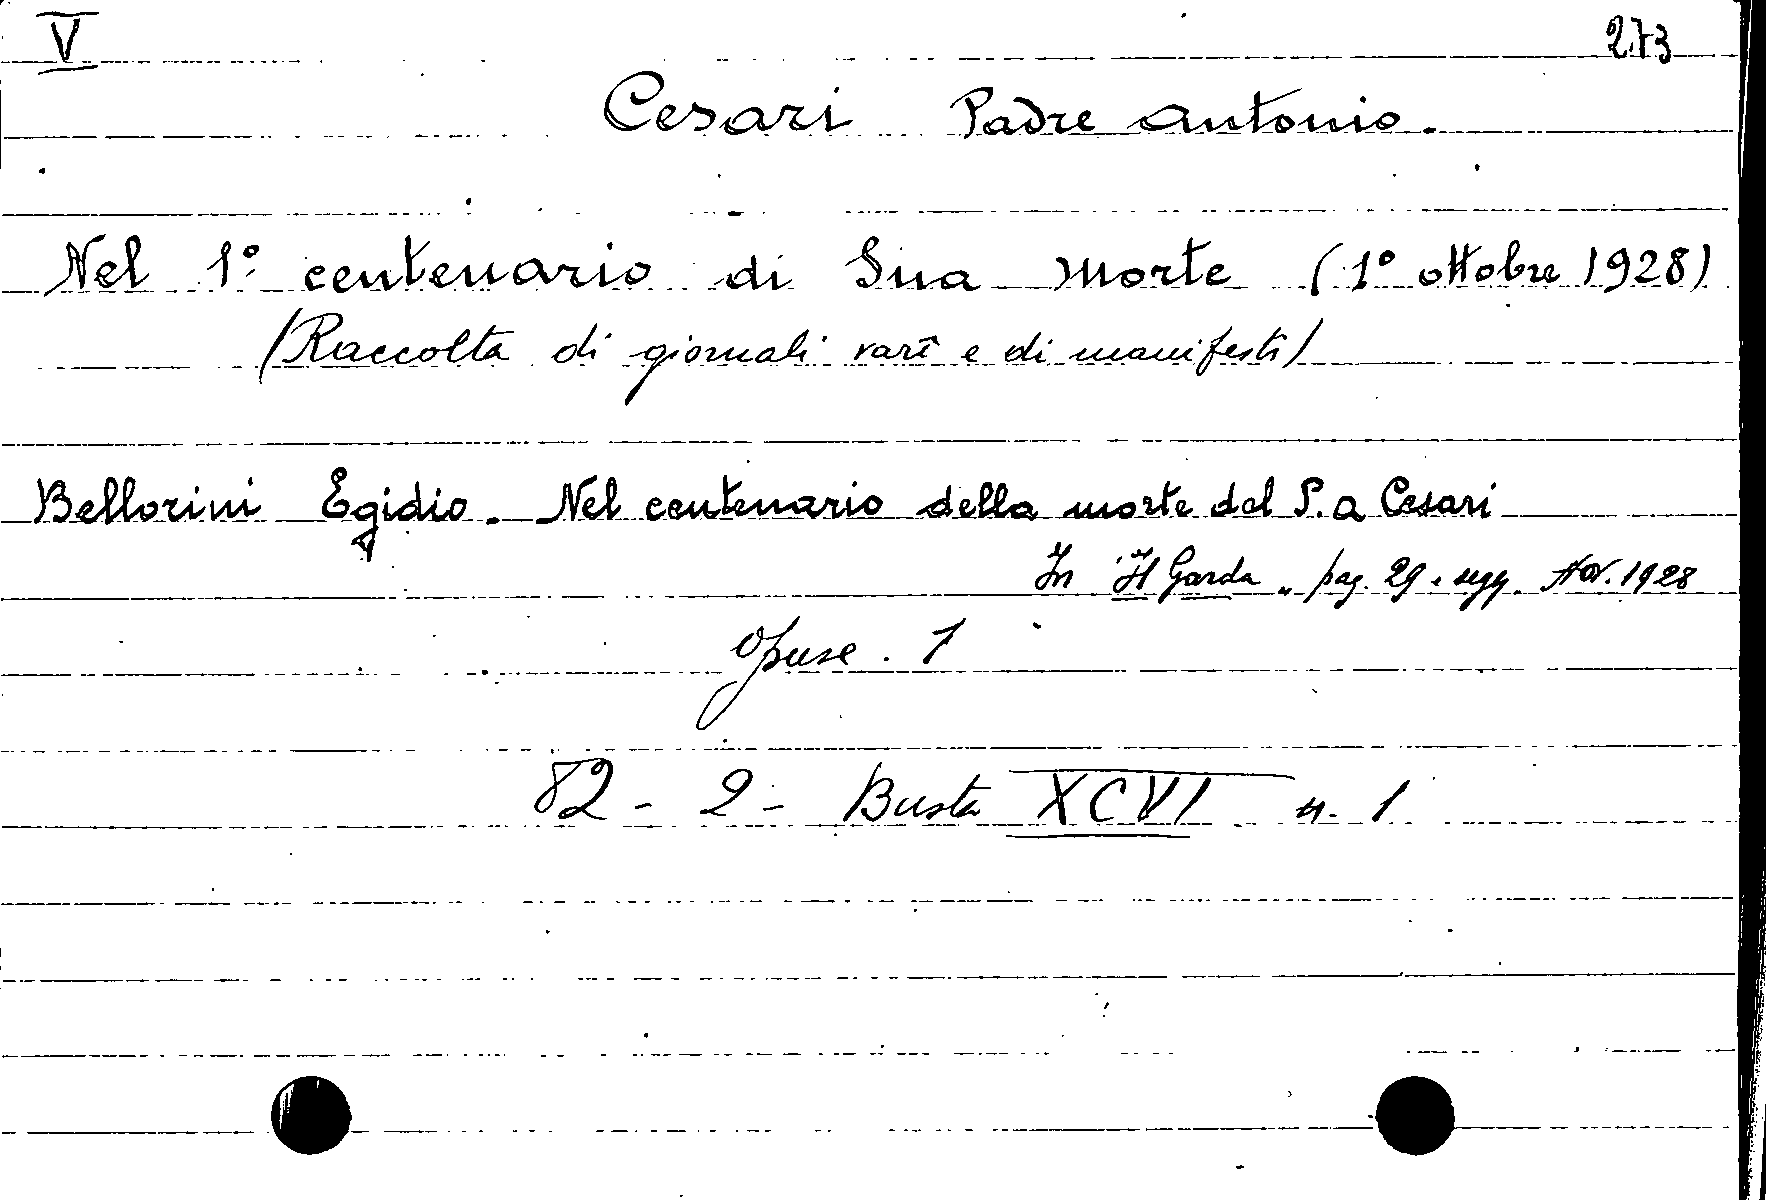 V 273
Cesari Padre Antonio.
Nel 1º centenario di Sua Morte (1º ottobre 1928)
(Raccolta di giornali varî e di manifesti)
Bellorini Egidio. Nel centenario della morte del P. A Cesari
In "Il Garda" pag. 29 e segg. Nov. 1928
Opusc. 1
82 - 2 - Busta XCVI n. 1